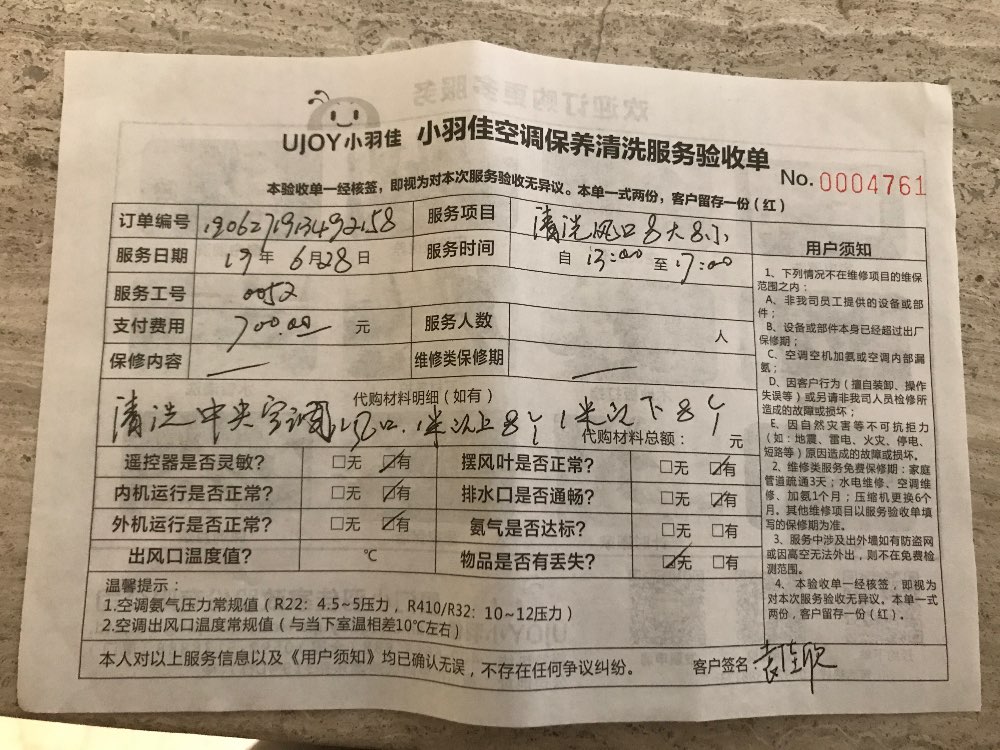 UJOY小羽佳 小羽佳空调保养清洗服务验收单
No. 0004761
本验收单一经核签，即视为对本次服务验收无异议。本单一式两份，客户留存一份（红）
订单编号 服务项目 清洗风口8大8小
服务日期 19年 6月28日 服务时间 自 13:00 至 17:00
服务工号 0052
支付费用 700.00 元 服务人数 人
保修内容 — 维修类保修期 —
代购材料明细（如有）
清洗中央空调风口.1米以上8个 1米以下8个
代购材料总额： 元
遥控器是否灵敏？ □无 ☑有 摆风叶是否正常？ □无 ☑有
内机运行是否正常？ □无 ☑有 排水口是否通畅？ □无 ☑有
外机运行是否正常？ □无 ☑有 氨气是否达标？ □无 □有
出风口温度值？ ℃ 物品是否有丢失？ ☑无 □有
温馨提示：
1.空调氨气压力常规值（R22: 4.5~5压力，R410/R32: 10~12压力）
2.空调出风口温度常规值（与当下室温相差10℃左右）
本人对以上服务信息以及《用户须知》均已确认无误，不存在任何争议纠纷。 客户签名：
用户须知
1、下列情况不在维修项目的维保
范围之内：
A、非我司员工提供的设备或部
件；
B、设备或部件本身已经超过出厂
保修期；
C、空调空机加氨或空调内部漏
氨；
D、因客户行为（擅自装卸、操作
失误等）或另请非我司人员检修所
造成的故障或损坏；
E、因自然灾害等不可抗拒力
（如：地震、雷电、火灾、停电、
短路等）原因造成的故障或损坏。
2、维修类服务免费保修期：家庭
管道疏通3天；水电维修、空调维
修、加氨1个月；压缩机更换6个
月。其他维修项目以服务验收单填
写的保修期为准。
3、服务中涉及出外墙如有防盗网
或因高空无法外出，则不在免费检
测范围。
4、本验收单一经核签，即视为
对本次服务验收无异议。本单一式
两份，客户留存一份（红）。